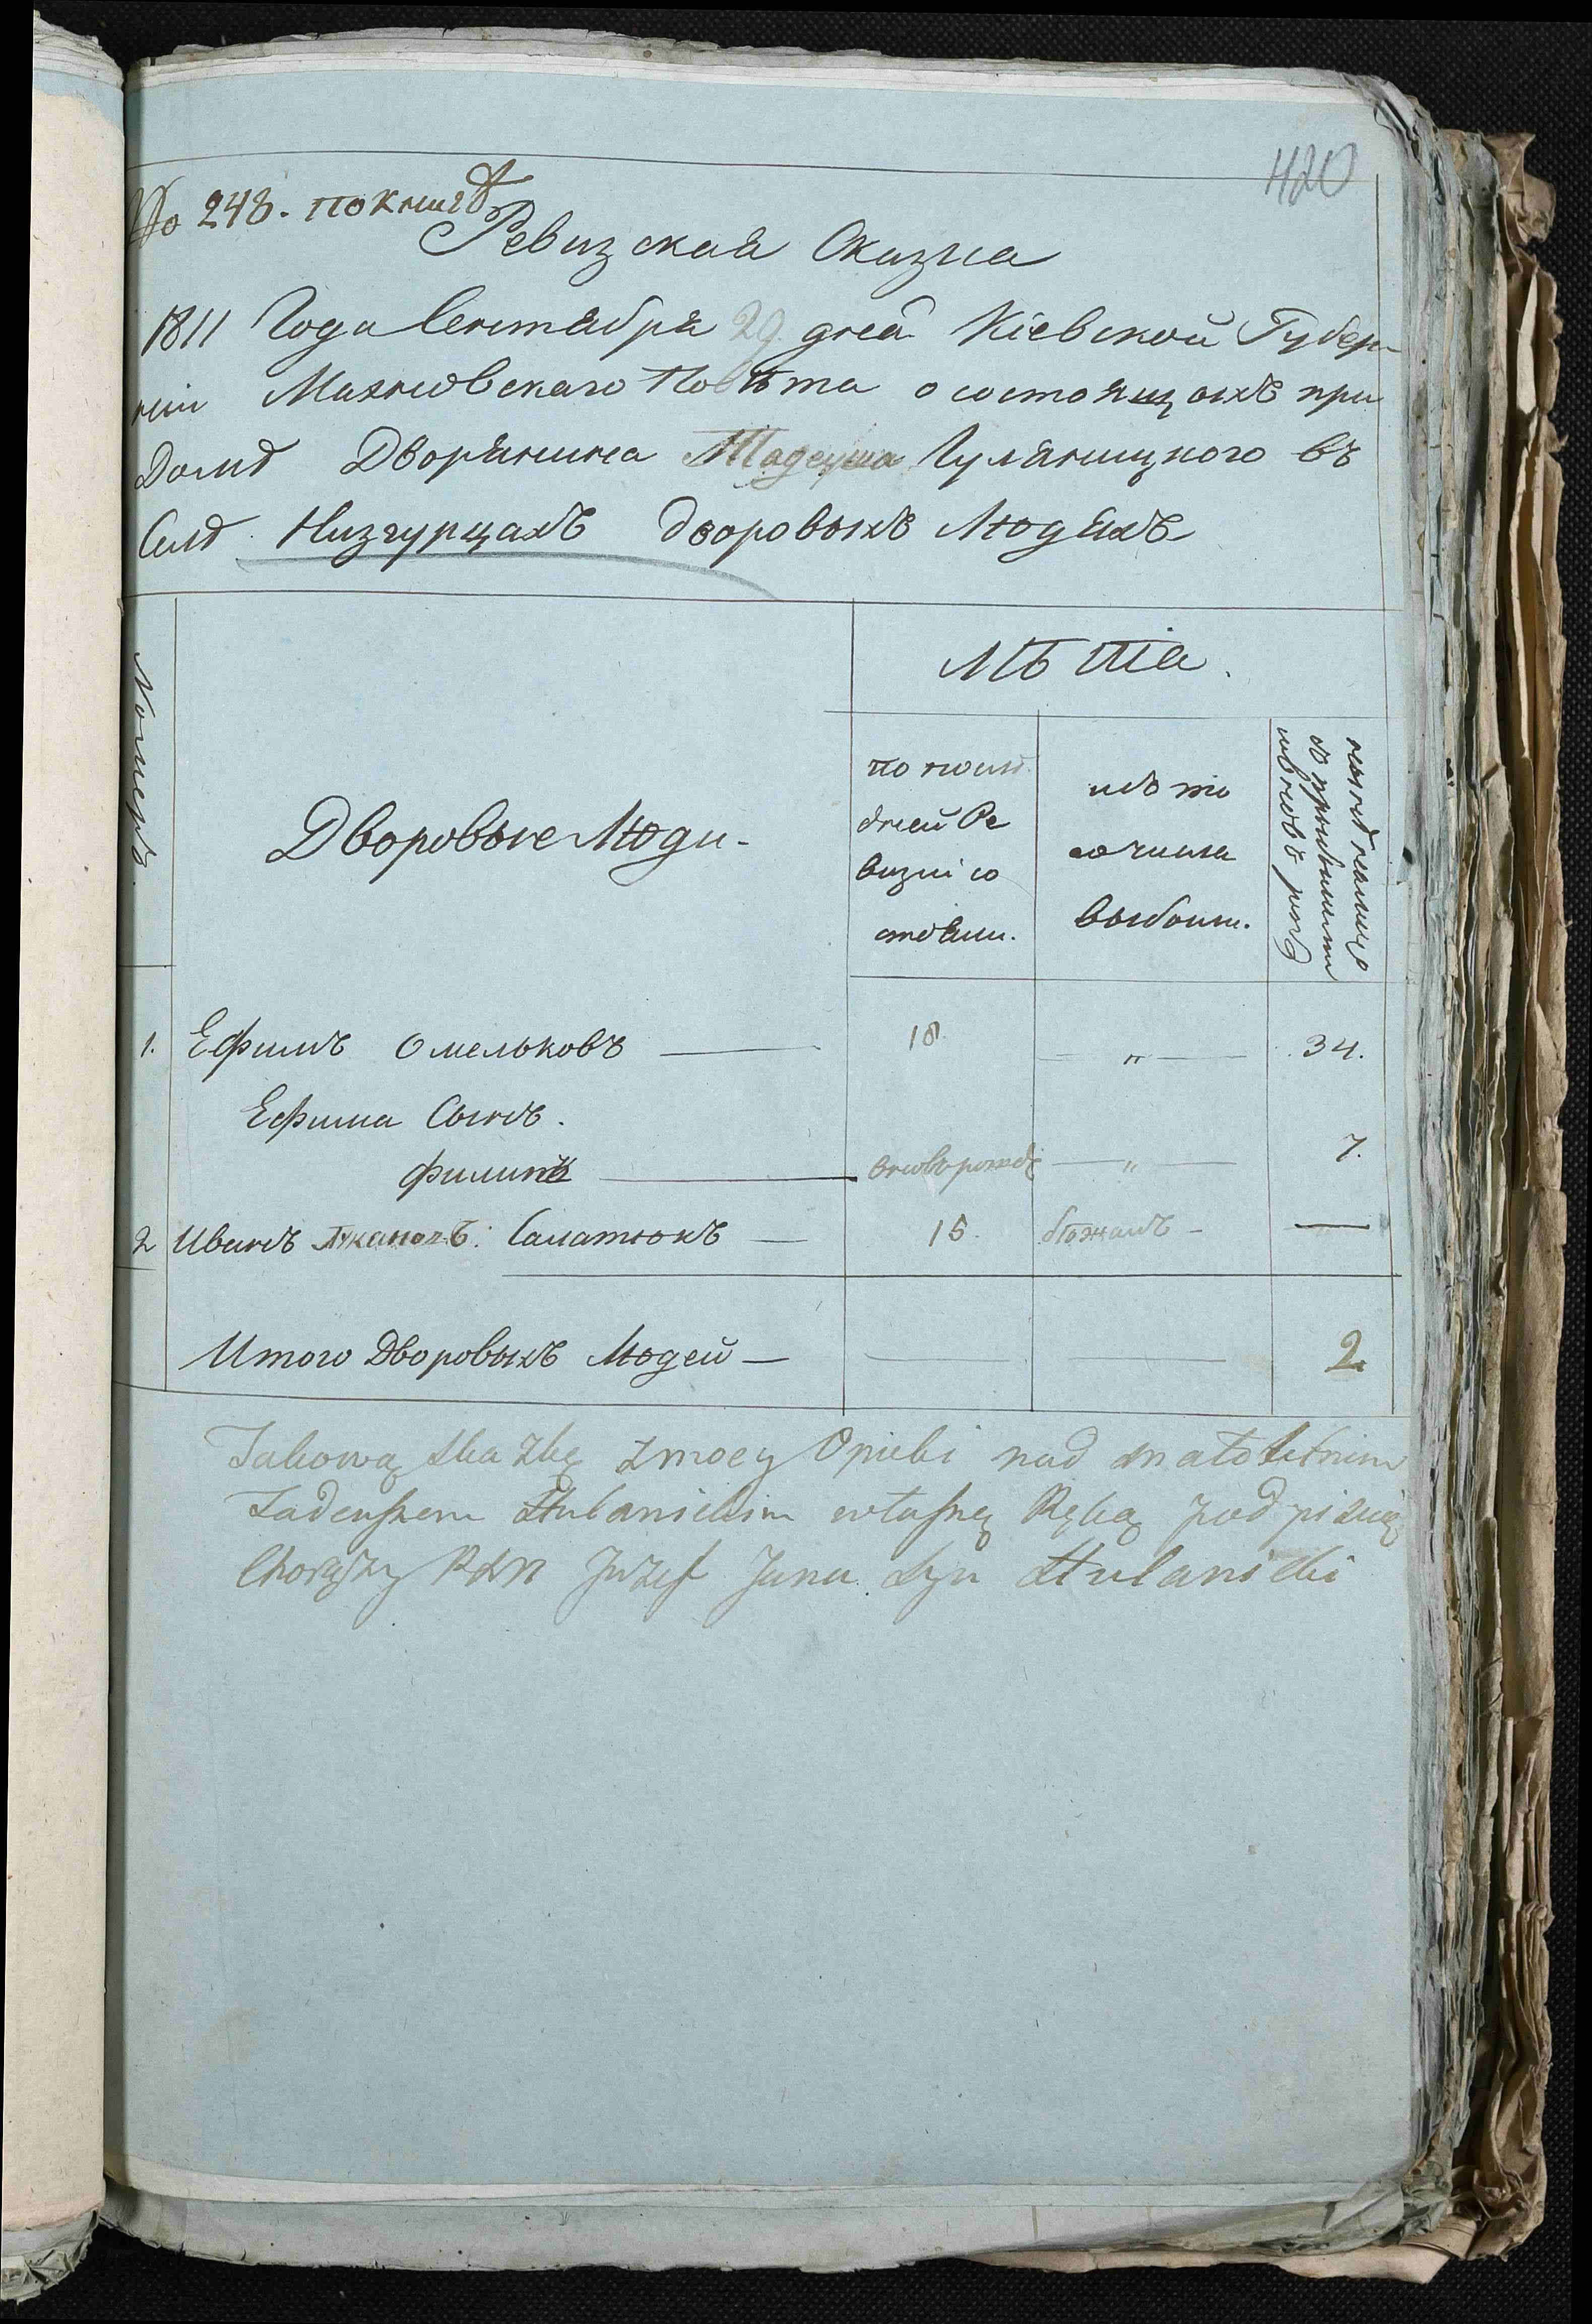 420
№ 248. по книгѣ
Ревизская Сказка
1811 Года Сентября 29 дня Кіевской Губер-
ніи Махновскаго Повѣта о состоящихъ при
Домѣ Дворянина Тадеуша Гуляницкого въ
Селѣ Низгурцахъ дворовыхъ Людяхъ
Номеръ
Дворовые Люди-
Лѣта.
по послѣ
дней Ре
визіи со
стояли.
изъ то
го числа
выбыли.
нынѣ налицо
съ прибывшими
и вновь рожд
1. Ефимъ Омельковъ — 18 — " — 34.
Ефима Сынъ.
Филипъ — вновь рожд — " — 7.
2 Иванъ Саматюкъ — 15. бѣжалъ - —
Итого Дворовыхъ Людей — 2.
Takową skazkę z moey Opieki nad małoletnim
Tadeuszem Hulanickim własną Ręką podpisuię
Chorąży Józef Jana Syn Hulanicki